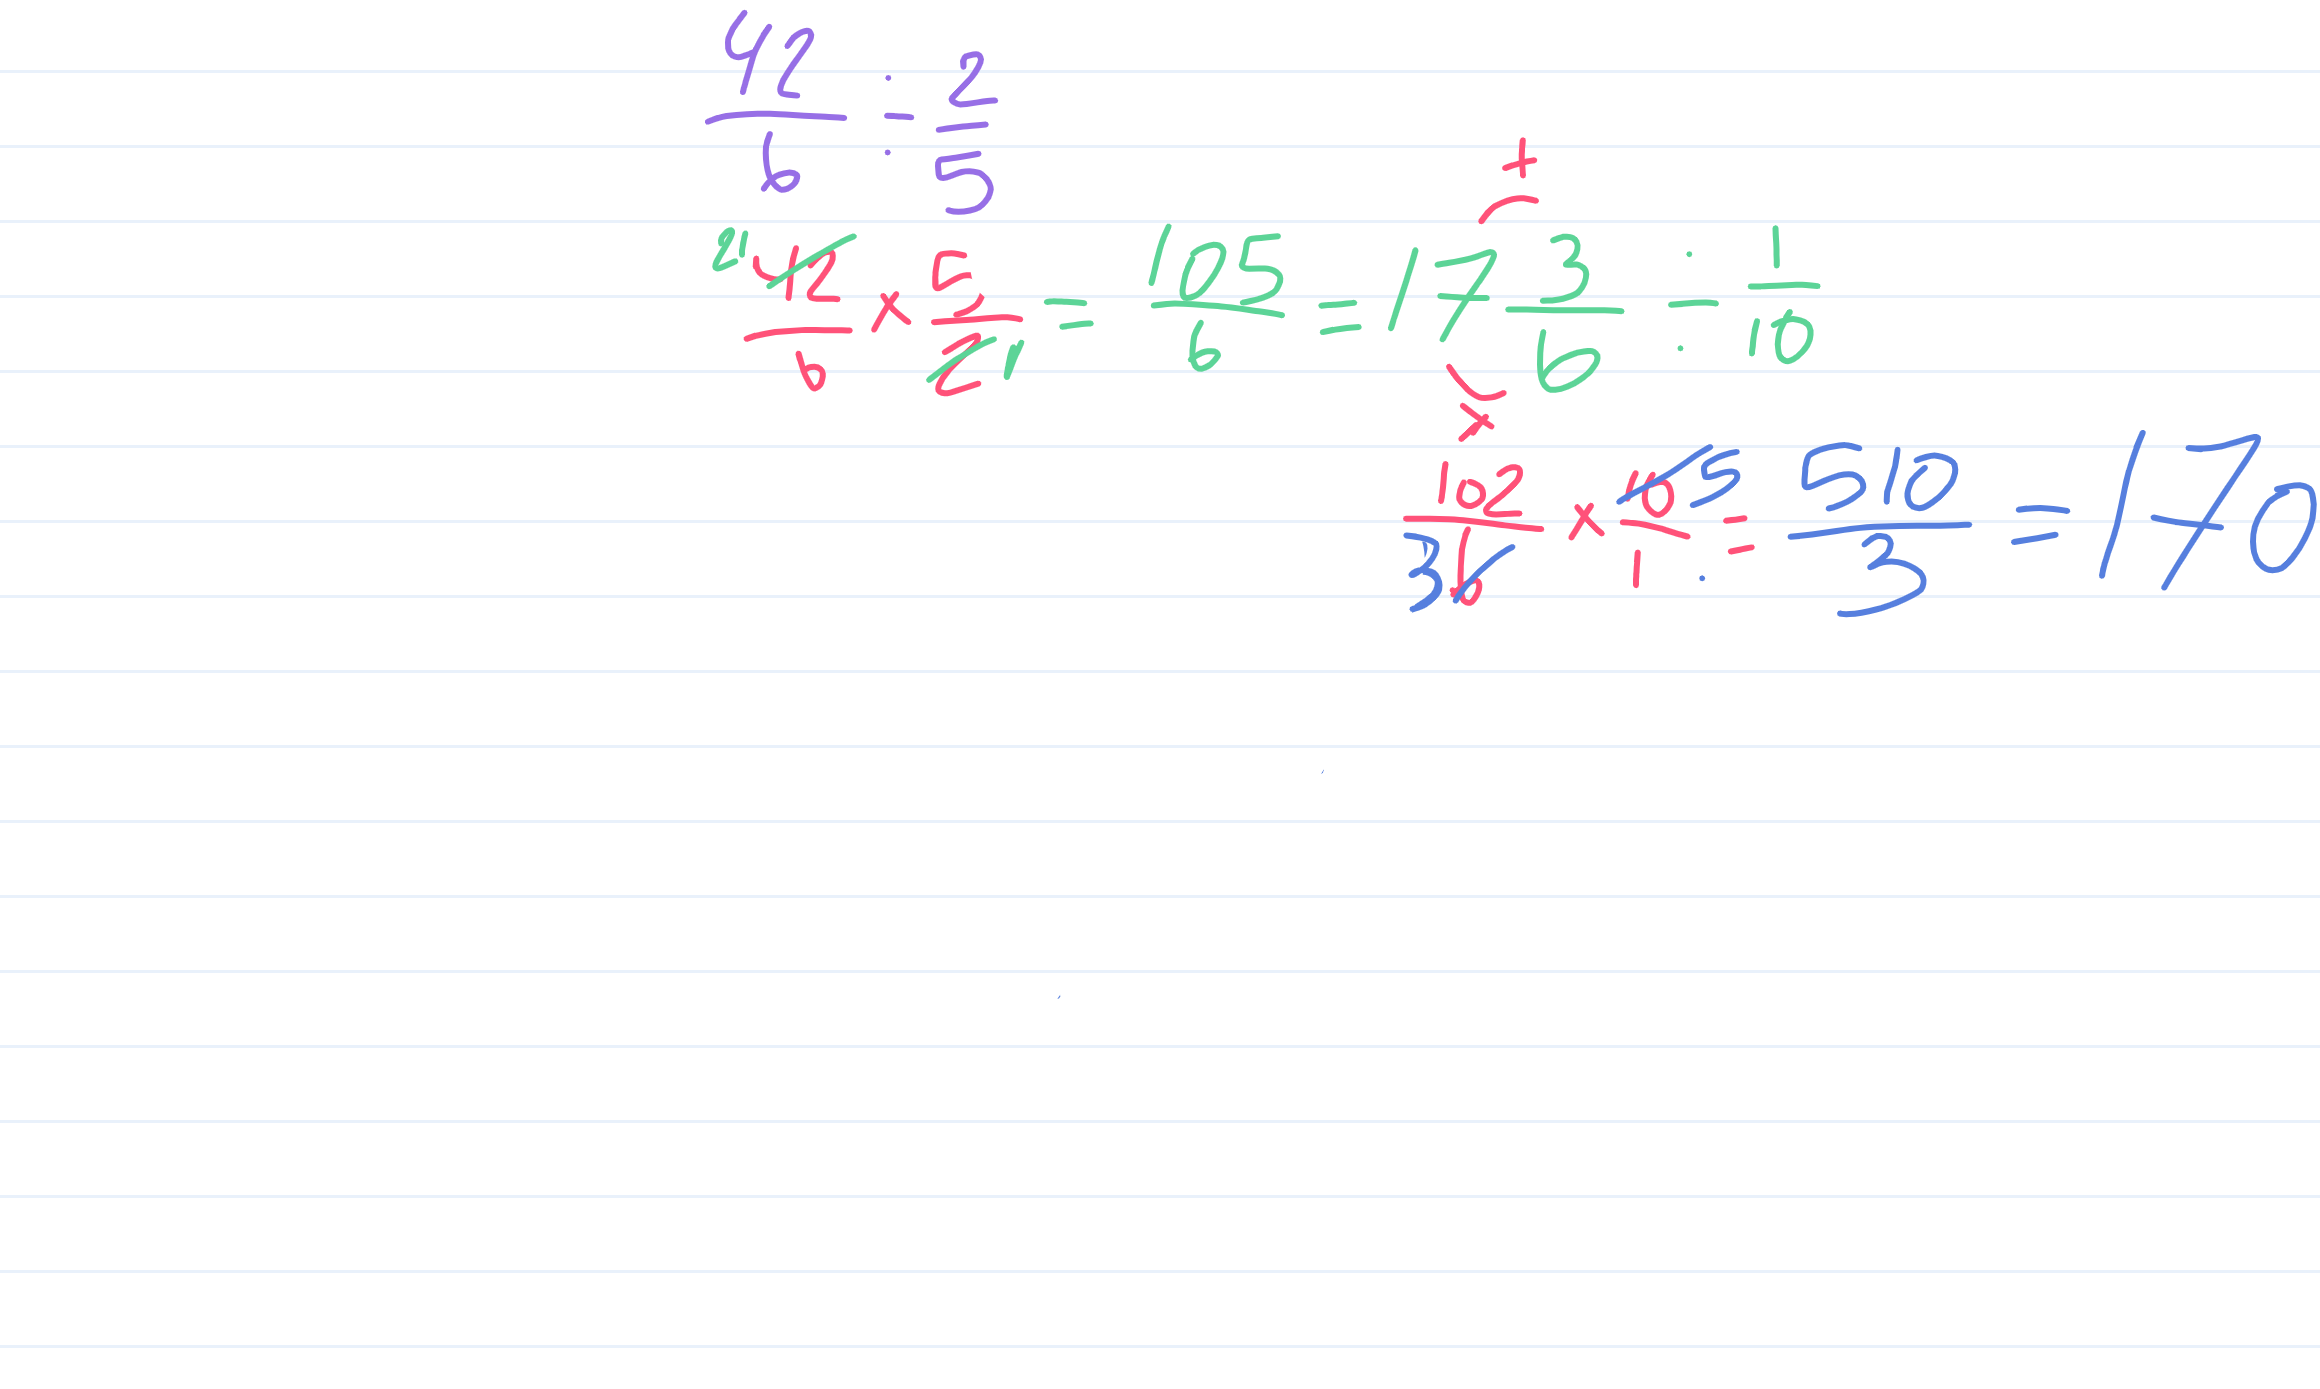 42/6 ÷ 2/5
21 42/6 × 5/2 1 = 105/6 = 17 3/6 ÷ 1/10
+
×
102/6 3 × 10/1 5 = 510/3 = 170